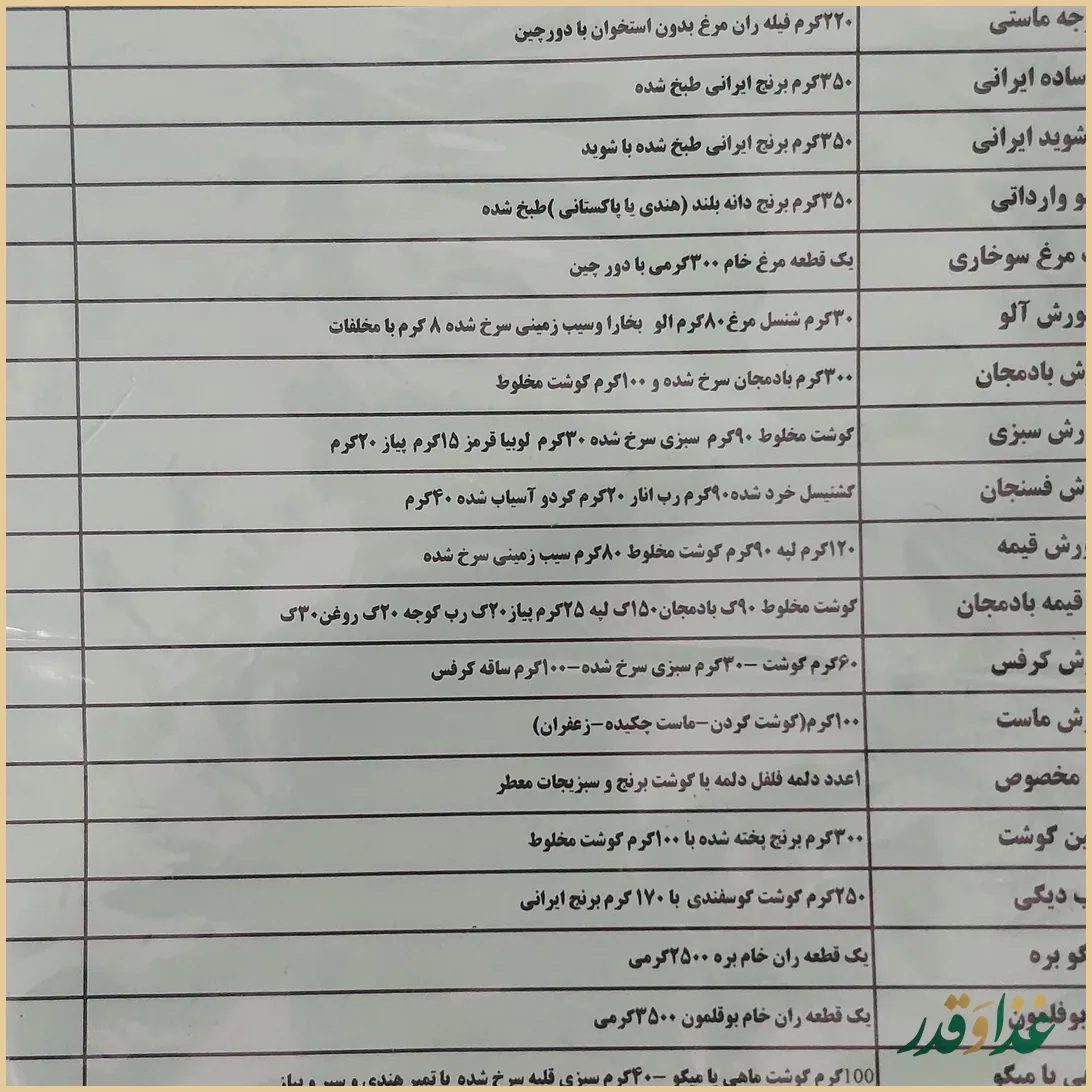 ماستی ۲۲۰گرم فیله ران مرغ بدون استخوان با دورچین
ساده ایرانی ۳۵۰گرم برنج ایرانی طبخ شده
شوید ایرانی ۳۵۰گرم برنج ایرانی طبخ شده با شوید
وارداتی ۳۵۰گرم برنج دانه بلند (هندی یا پاکستانی )طبخ شده
مرغ سوخاری یک قطعه مرغ خام ۳۰۰گرمی با دور چین
ورش آلو ۳۰گرم شنسل مرغ۸۰گرم الو بخارا وسیب زمینی سرخ شده ۸ گرم با مخلفات
ش بادمجان ۳۰۰گرم بادمجان سرخ شده و ۱۰۰گرم گوشت مخلوط
رش سبزی گوشت مخلوط ۹۰گرم سبزی سرخ شده ۳۰گرم لوبیا قرمز ۱۵گرم پیاز ۲۰گرم
ش فسنجان گشنیسل خرد شده۹۰گرم رب انار ۲۰گرم گردو آسیاب شده ۴۰گرم
ورش قیمه ۱۲۰گرم لپه ۹۰گرم گوشت مخلوط ۸۰گرم سیب زمینی سرخ شده
قیمه بادمجان گوشت مخلوط ۹۰گ بادمجان۱۵۰گ لپه ۲۵گرم پیاز۲۰گ رب گوجه ۲۰گ روغن۳۰گ
ش کرفس ۶۰گرم گوشت -۳۰گرم سبزی سرخ شده-۱۰۰گرم ساقه کرفس
ش ماست ۱۰۰گرم(گوشت گردن-ماست چکیده-زعفران)
مخصوص ۱عدد دلمه فلفل دلمه یا گوشت برنج و سبزیجات معطر
ین گوشت ۳۰۰گرم برنج پخته شده با ۱۰۰گرم گوشت مخلوط
ب دیگی ۲۵۰گرم گوشت گوسفندی با ۱۷۰ گرم برنج ایرانی
گو بره یک قطعه ران خام بره ۲۵۰۰گرمی
بوقلمون یک قطعه ران خام بوقلمون ۳۵۰۰گرمی
با میگو 100گرم گوشت ماهی یا میگو -۴۰گرم سبزی قلیه سرخ شده با تمبر هندی و سیر و پیاز
غذا و قدر